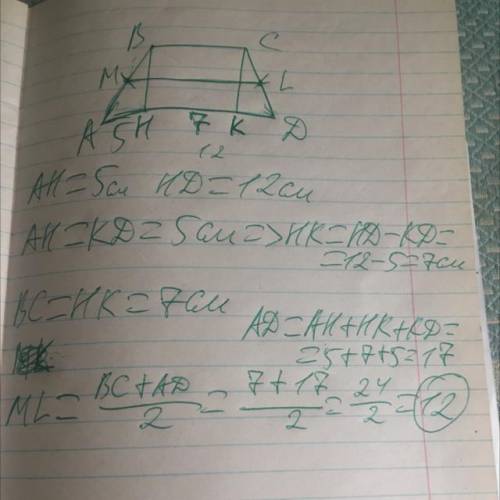 B C
M L
A 5 H 7 K D
12
AH=5см HD=12см
AH=KD=5см=>HK=HD-KD=
=12-5=7см
BC=HK=7см
AD=AH+HK+KD=
=5+7+5=17
ML=(BC+AD)/2=(7+17)/2=24/2=12